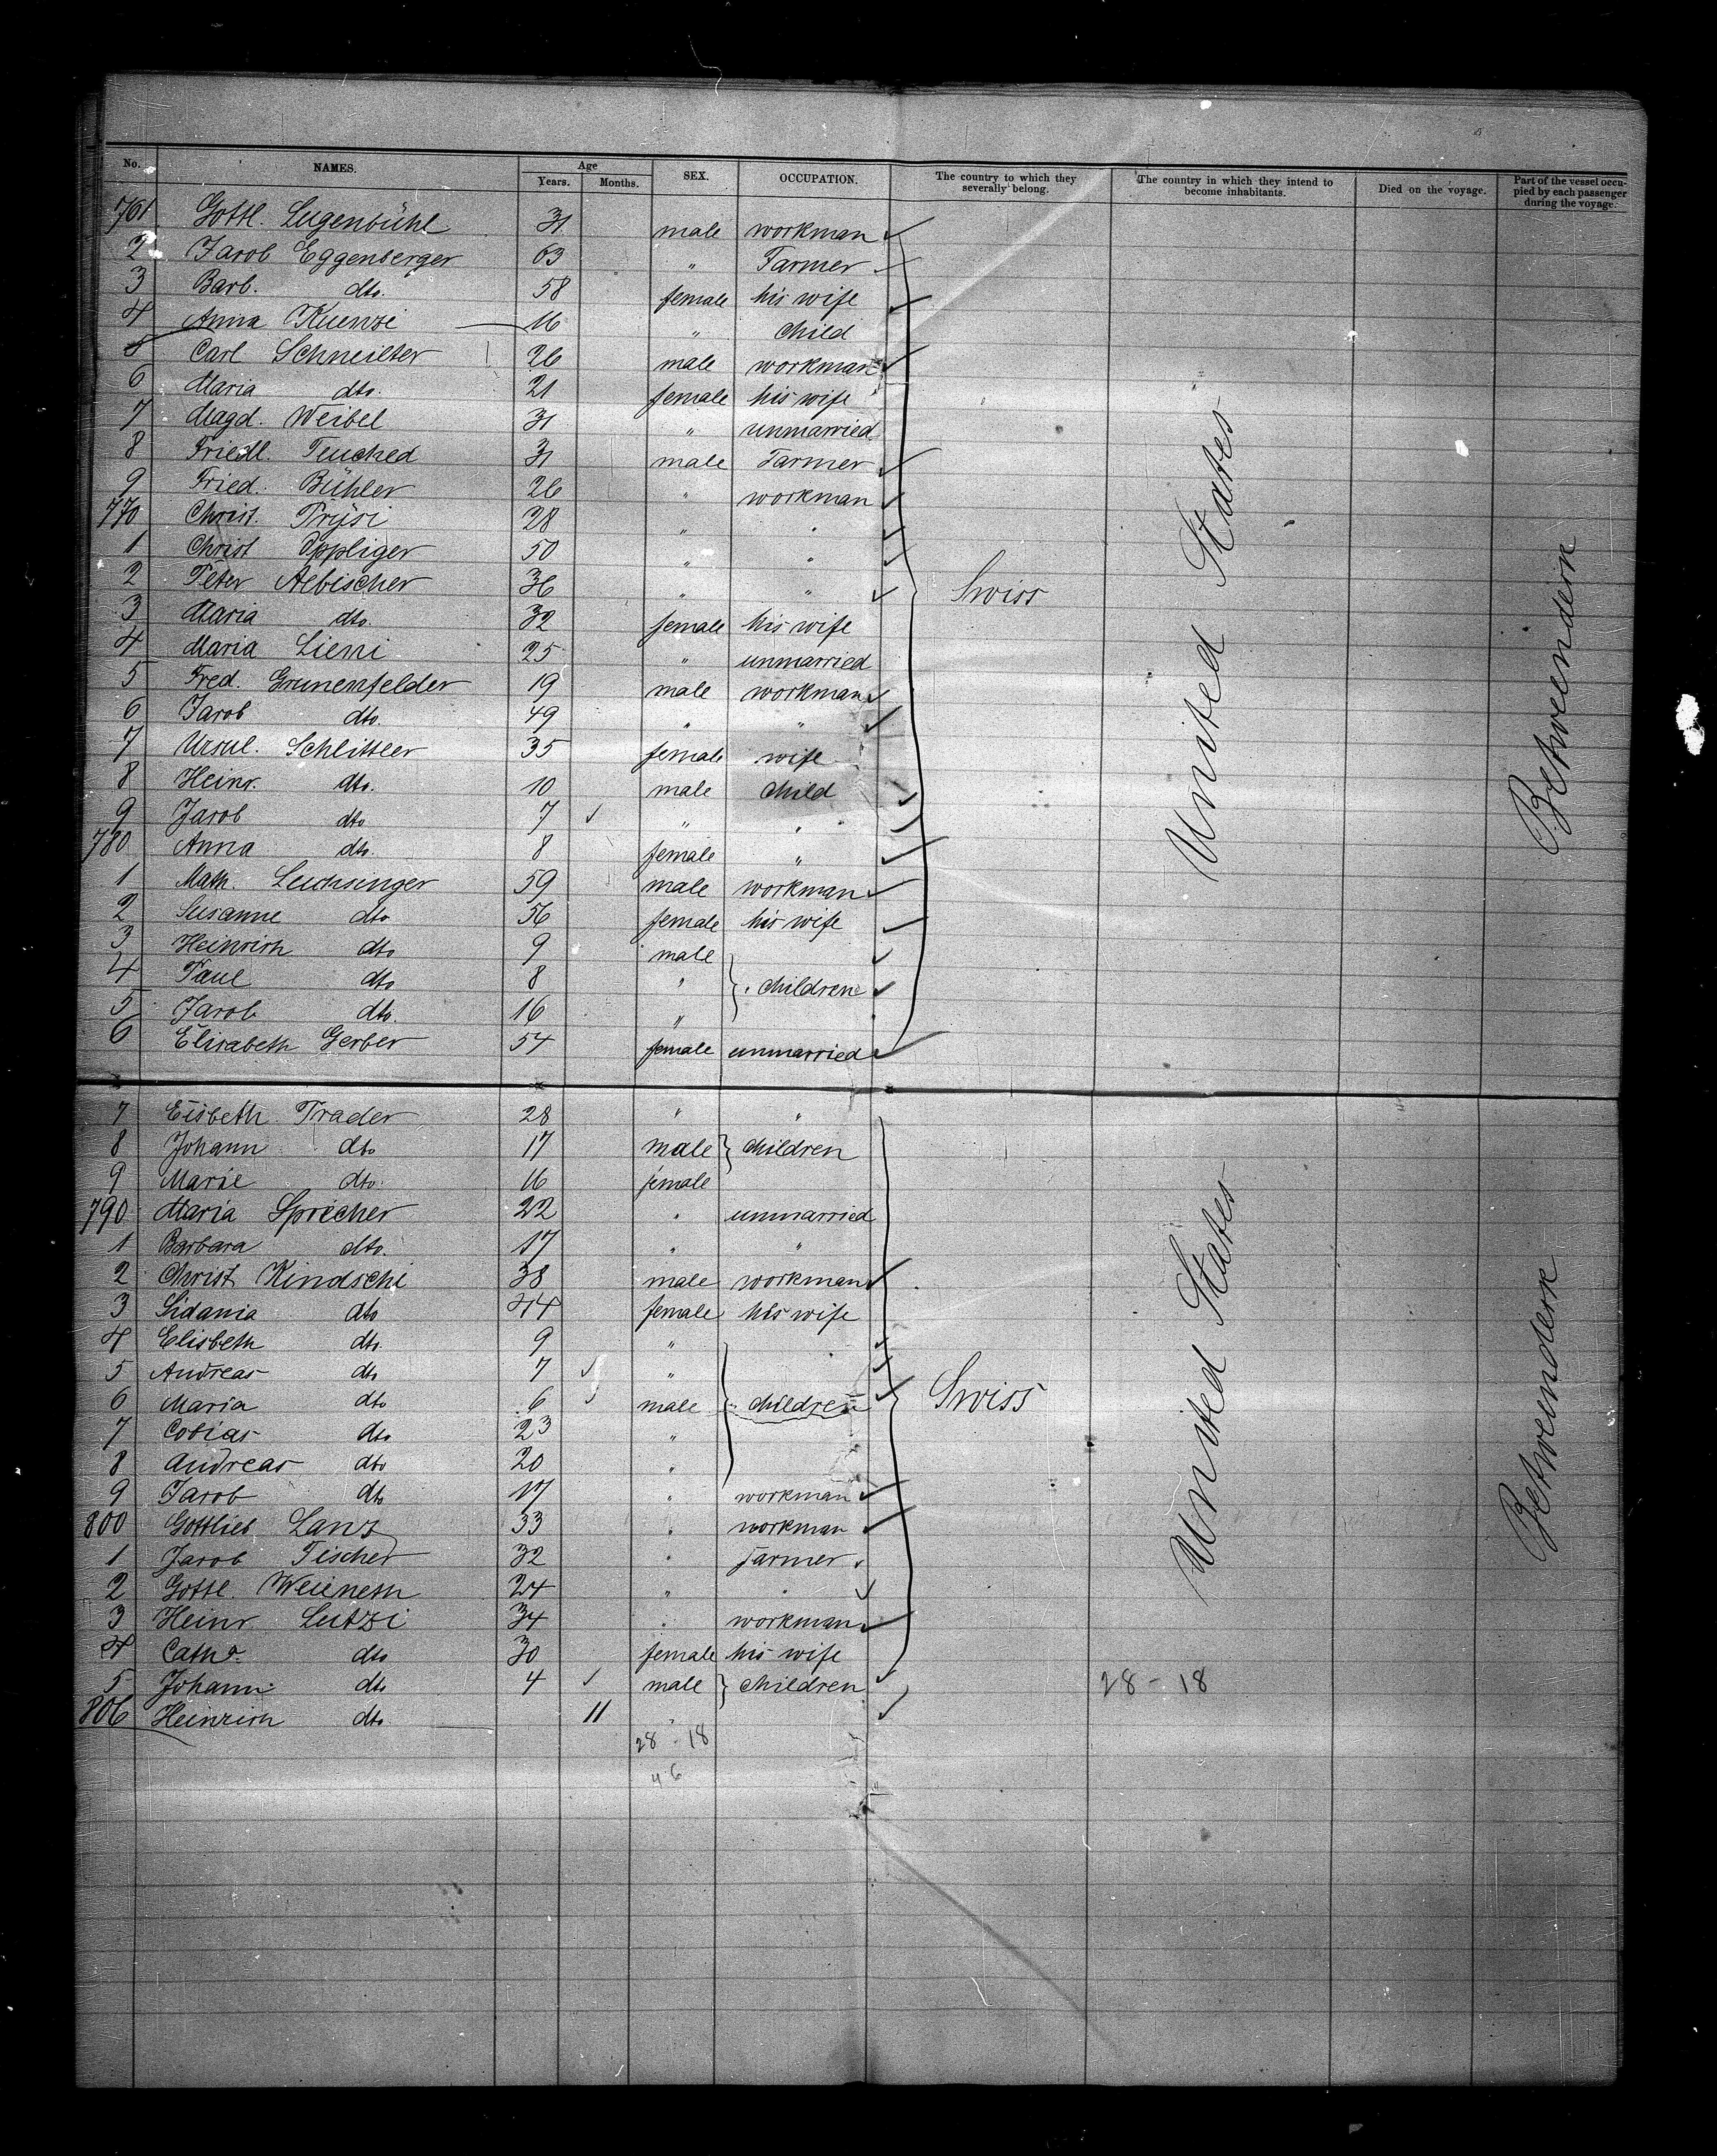 No. NAMES. Age SEX. OCCUPATION. The country to which they severally belong. The country in which they intend to become inhabitants. Died on the voyage. Part of the vessel occupied by each passenger during the voyage.
Years. Months.
761 Gottl. Lugenbühl 31 male workman
2 Jacob Eggenberger 63 " Farmer
3 Barb. dto. 58 female his wife
4 Anna Kuenzi 16 " child
5 Carl Schneiter 26 male workman
6 Maria dto. 21 female his wife
7 Magd. Weibel 31 " unmarried
8 Friedl. Teuched 31 male Farmer
9 Fried. Bühler 26 " workman
770 Christ. Prysi 28 " "
1 Christ Oppliger 50 " "
2 Peter Aebischer 36 " " Swiss United States Betweenderk
3 Maria dto. 32 female his wife
4 Maria Lieni 25 " unmarried
5 Fred. Grunenfelder 19 male workman
6 Jacob dto. 49 " "
7 Ursul. Schlittler 35 female wife
8 Heinr. dto. 10 male child
9 Jacob dto 7 " "
780 Anna dto. 8 female "
1 Math. Luchsinger 59 male workman
2 Susanne dto 56 female his wife
3 Heinrich dto 9 male
4 Paul dto 8 " children
5 Jacob dto. 16 "
6 Elisabeth Gerber 54 female unmarried
7 Eisbeth Trader 28 " "
8 Johann dto 17 male children
9 Marie dto. 16 female
790 Maria Sprecher 22 " unmarried
1 Barbara dto. 17 " "
2 Christ Kindschi 38 male workman
3 Sidania dto 44 female his wife
4 Elisbeth dto. 9 "
5 Andreas dto 7 "
6 Maria dto 6 male children Swiss United States Betweenderk
7 Cobias dto 23 "
8 Andreas dto 20 "
9 Jacob dto 17 " workman
800 Gottlieb Lanz 33 " workman
1 Jacob Fischer 32 " Farmer
2 Gottl. Weieneth 24 " "
3 Heinr. Lutzi 34 " workman
4 Cath. dto 30 female his wife
5 Johann dto 4 male children 28 - 18
806 Heinrich dto. 11 "
28 - 18
46